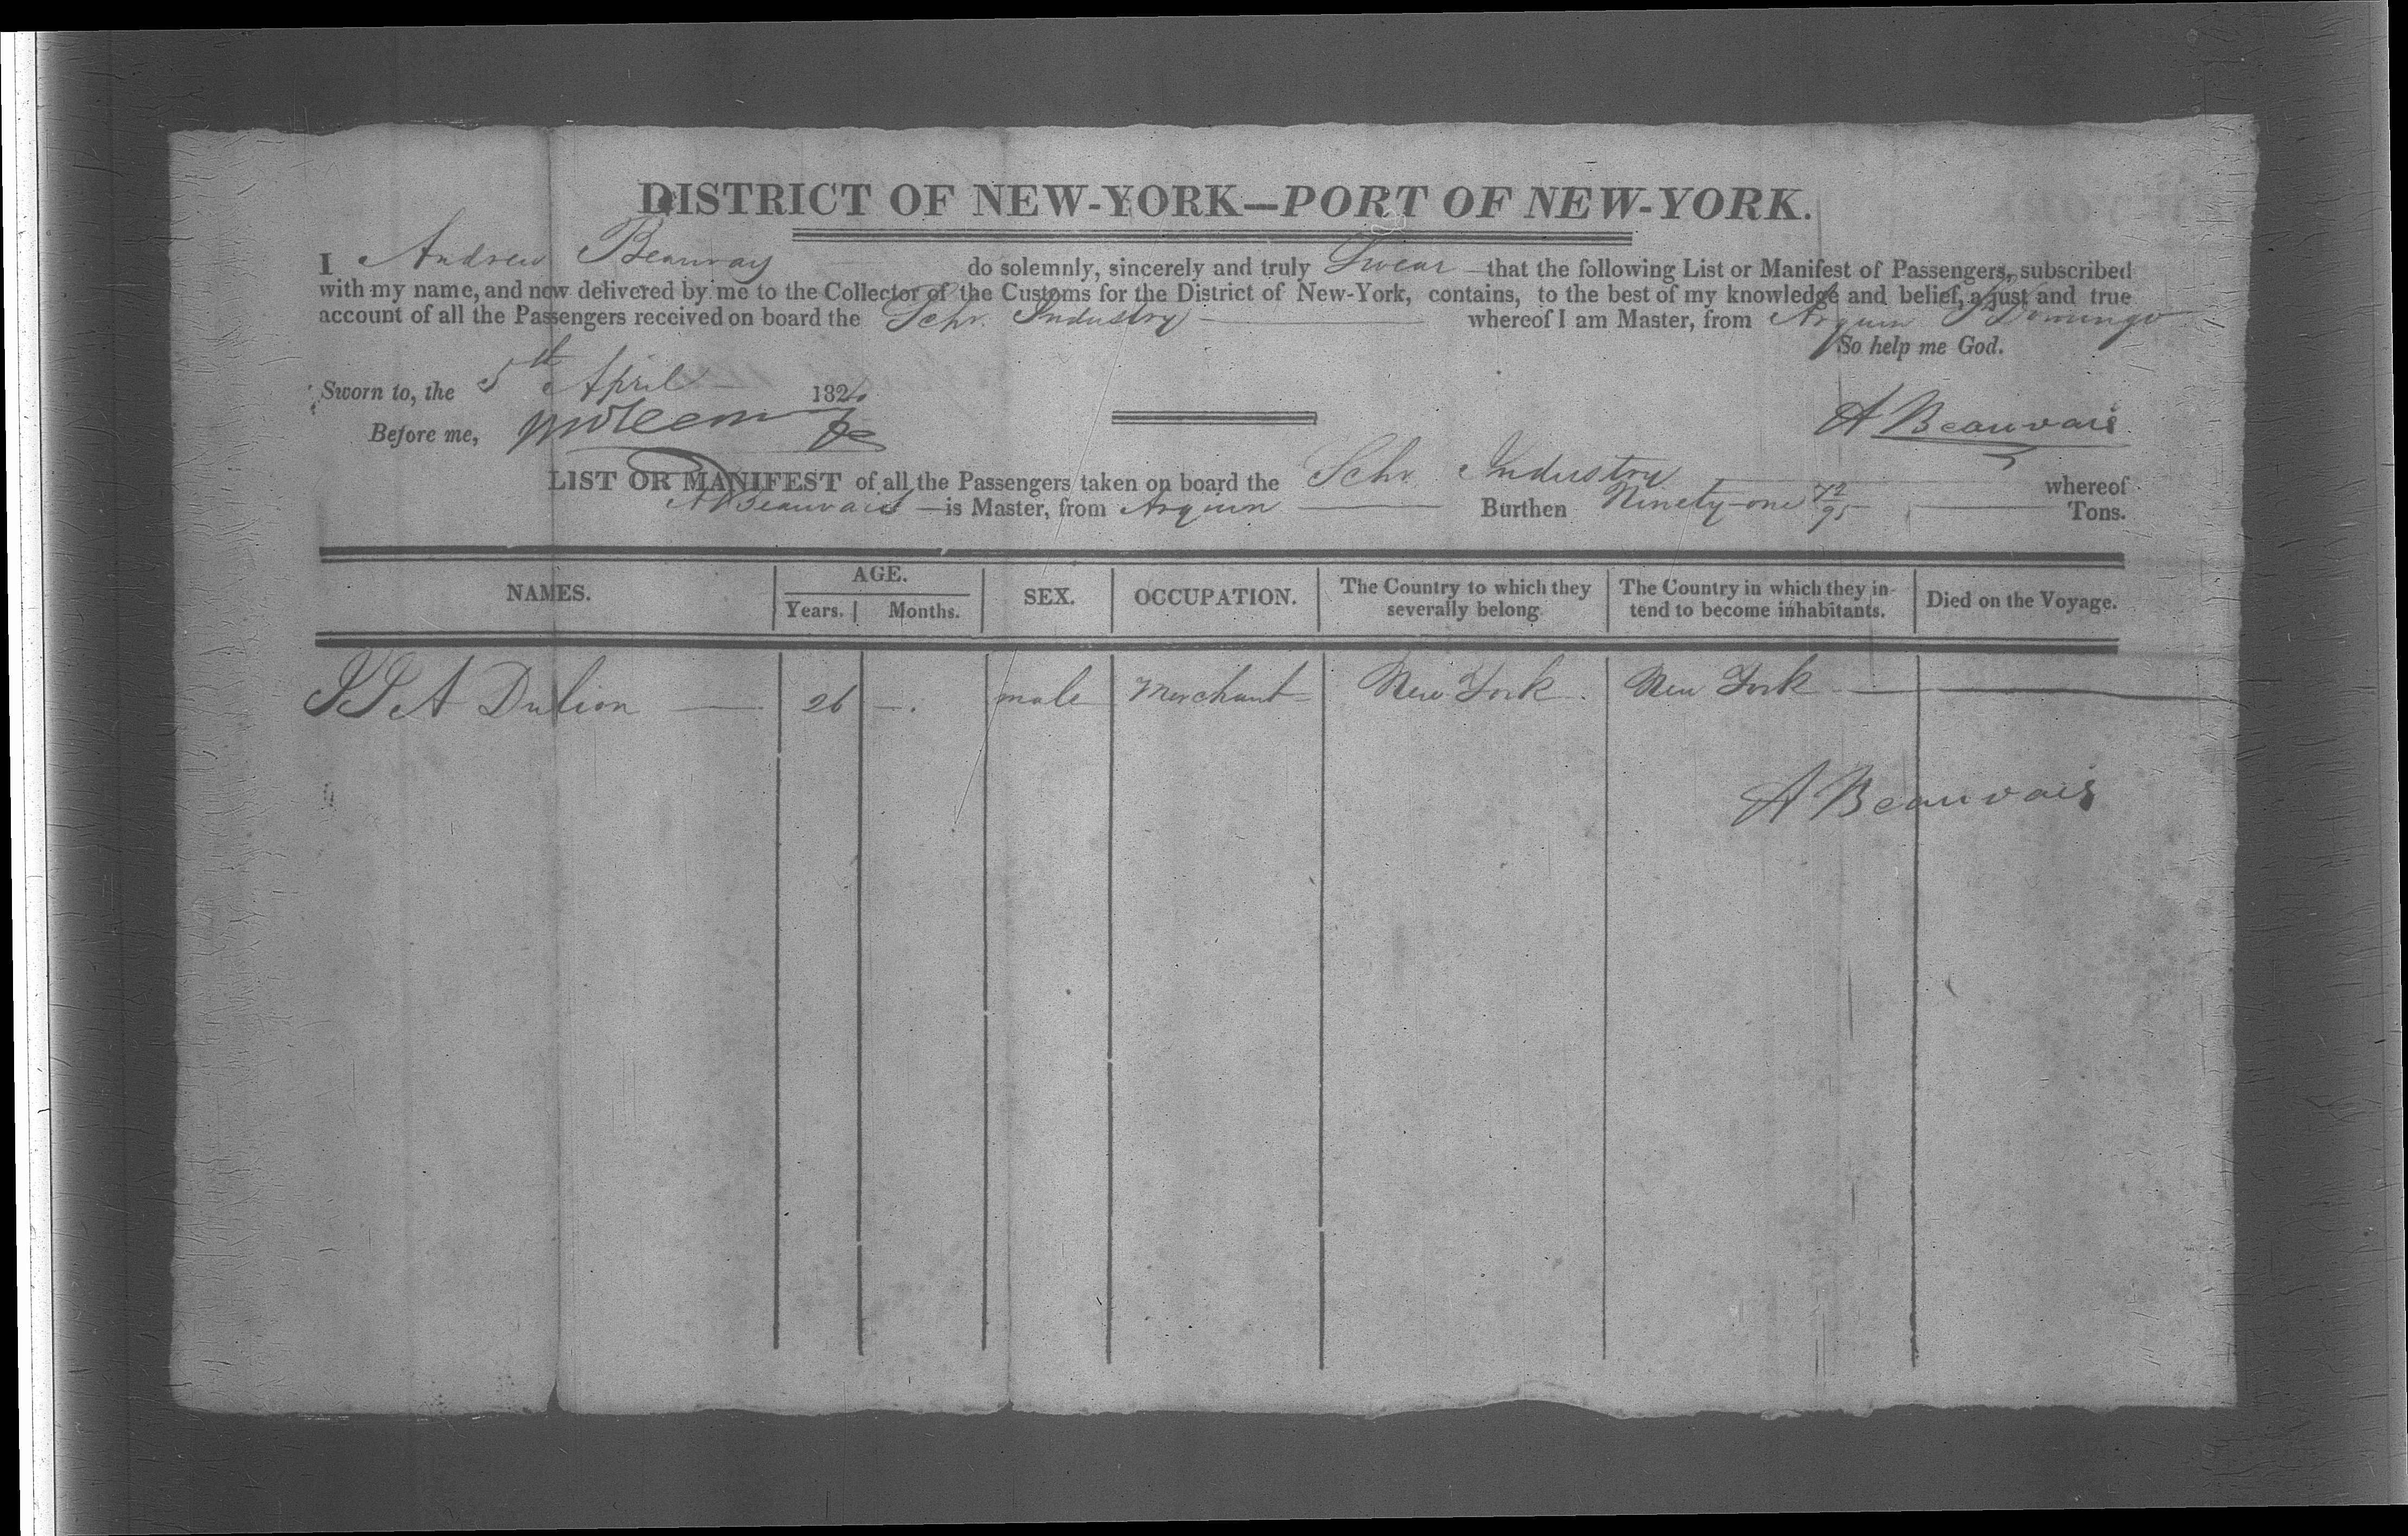 DISTRICT OF NEW-YORK—PORT OF NEW-YORK.
I Andrew Beauvay do solemnly, sincerely and truly Swear that the following List or Manifest of Passengers, subscribed
with my name, and now delivered by me to the Collector of the Customs for the District of New-York, contains, to the best of my knowledge and belief, a just and true
account of all the Passengers received on board the Schr. Industry whereof I am Master, from Arquin St Domingo
So help me God.
Sworn to, the 5th April 182
Before me,
A Beauvais
LIST OR MANIFEST of all the Passengers taken on board the Schr. Industry whereof
A Beauvais is Master, from Arquin Burthen Ninety-one 72/95 Tons.
NAMES. AGE. Years. Months. SEX. OCCUPATION. The Country to which they severally belong. The Country in which they intend to become inhabitants. Died on the Voyage.
A Dulion — 26 —. male Merchant New York. New York —
A Beauvais